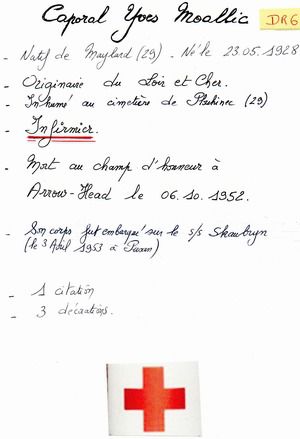 Caporal Yves Moallic
DR6
- Natif de Mayland (29) - Né le 23.05.1928
- Originaire du Loir et Cher.
- Inhumé au cimetière de Plouhinec (29)
- Infirmier.
- Mort au champ d'honneur à
Arrow-Head le 06.10.1952.
- Son corps fut embarqué sur le s/s Skaubryn
(le 3 Avril 1953 à Pusan)
- 1 citation
- 3 décorations.